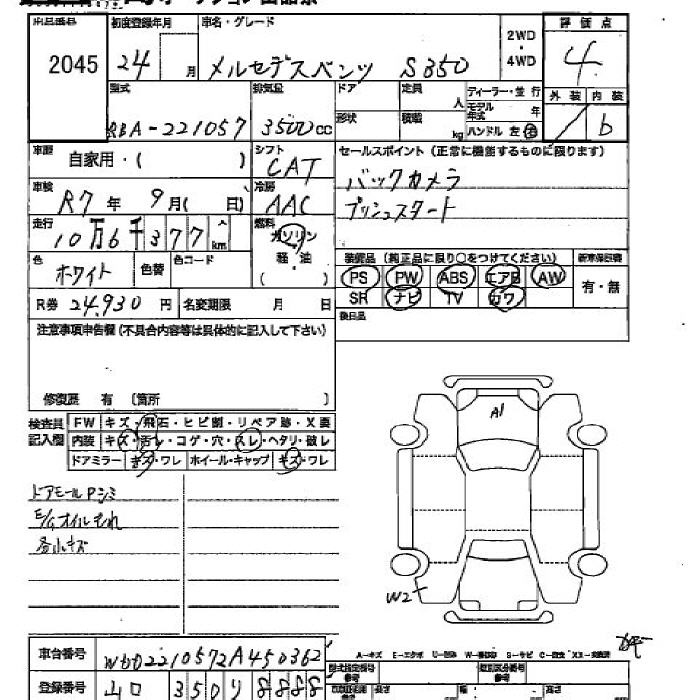 出品番号 初度登録年月 車名・グレード 2WD・4WD 評価点
2045 24 月 メルセデスベンツ S350 4
型式 排気量 ドア 定員 人 ディーラー・並行 外装 内装
DBA-221057 3500cc 形状 積載 kg モデル年式 年 ハンドル 左 右 b
車歴 自家用・( ) シフト CAT セールスポイント (正常に機能するものに限ります)
車検 R7年 9月( 日) 冷房 AAC バックカメラ
プッシュスタート
走行 10万6千377km 燃料 ガソリン 軽油 ( )
色 ホワイト 色替 色コード 装備品 (純正品に限り○をつけてください) 新車保証書
PS PW ABS エアB AW 有・無
R券 24,930円 名変期限 月 日 SR ナビ TV カワ
後日品
注意事項申告欄 (不具合内容等は具体的に記入して下さい)
修復歴 有 〔箇所 〕
検査員記入欄 FW キズ・飛石・ヒビ割・リペア跡・X要
内装 キズ・汚レ・コゲ・穴・スレ・ヘタリ・破レ
ドアミラー キズ・ワレ ホイール・キャップ キズ・ワレ
A1
ドアモールPシミ
E/Gオイルもれ
各小キズ
W2
車台番号 WDD2210572A450362
登録番号 山口 350 り 8888